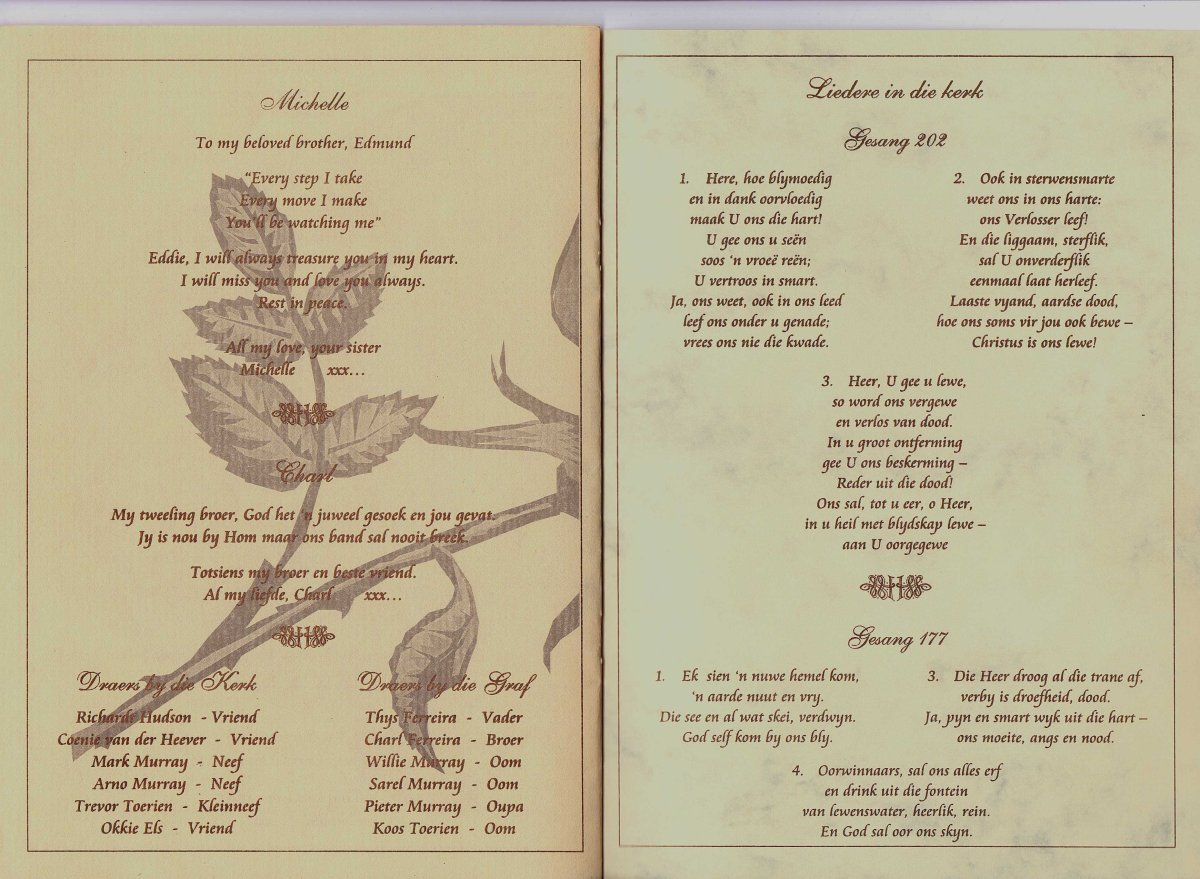 Michelle
To my beloved brother, Edmund
“Every step I take
Every move I make
You'll be watching me”
Eddie, I will always treasure you in my heart.
I will miss you and love you always.
Rest in peace.
All my love, your sister
Michelle xxx…
Charl
My tweeling broer, God het 'n juweel gesoek en jou gevat.
Jy is nou by Hom maar ons band sal nooit breek.
Totsiens my broer en beste vriend.
Al my liefde, Charl xxx…
Draers by die Kerk
Richardt Hudson - Vriend
Coenie van der Heever - Vriend
Mark Murray - Neef
Arno Murray - Neef
Trevor Toerien - Kleinneef
Okkie Els - Vriend
Draers by die Graf
Thys Ferreira - Vader
Charl Ferreira - Broer
Willie Murray - Oom
Sarel Murray - Oom
Pieter Murray - Oupa
Koos Toerien - Oom
Liedere in die kerk
Gesang 202
1. Here, hoe blymoedig
en in dank oorvloedig
maak U ons die hart!
U gee ons u seën
soos 'n vroeë reën;
U vertroos in smart.
Ja, ons weet, ook in ons leed
leef ons onder u genade;
vrees ons nie die kwade.
2. Ook in sterwensmarte
weet ons in ons harte:
ons Verlosser leef!
En die liggaam, sterflik,
sal U onverderflik
eenmaal laat herleef.
Laaste vyand, aardse dood,
hoe ons soms vir jou ook bewe –
Christus is ons lewe!
3. Heer, U gee u lewe,
so word ons vergewe
en verlos van dood.
In u groot ontferming
gee U ons beskerming –
Reder uit die dood!
Ons sal, tot u eer, o Heer,
in u heil met blydskap lewe –
aan U oorgegewe
Gesang 177
1. Ek sien 'n nuwe hemel kom,
'n aarde nuut en vry.
Die see en al wat skei, verdwyn.
God self kom by ons bly.
3. Die Heer droog al die trane af,
verby is droefheid, dood.
Ja, pyn en smart wyk uit die hart –
ons moeite, angs en nood.
4. Oorwinnaars, sal ons alles erf
en drink uit die fontein
van lewenswater, heerlik, rein.
En God sal oor ons skyn.